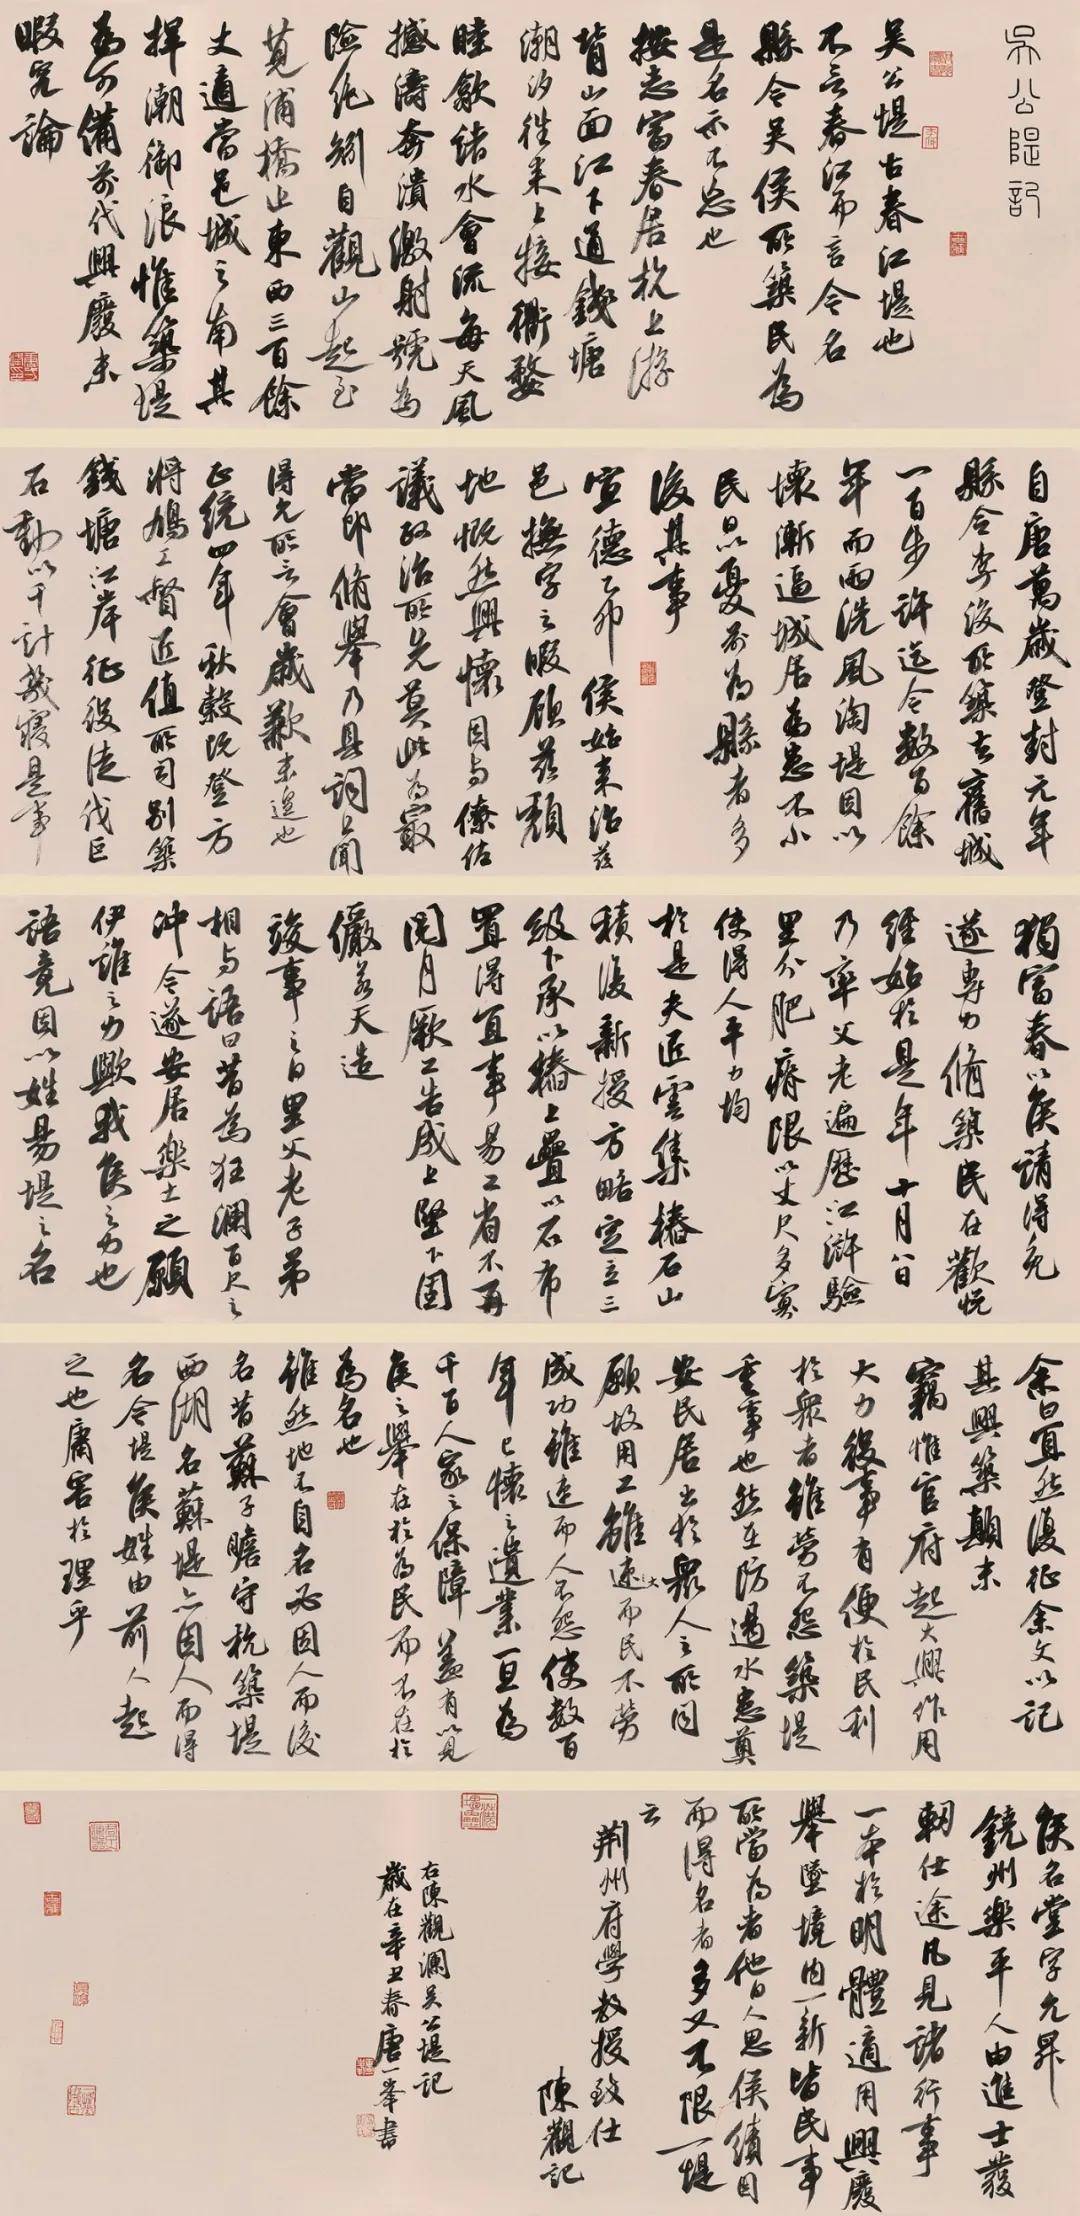 吴公隄記
吴公堤古春江堤也
不言春江而言令名
縣令吴侯所築民為
是名示不忘也
按志富春居杭上游
背山面江下通錢塘
潮汐徃来上接衢婺
睦歙諸水會流每天風
撼濤奔潰激射號為
險絶
自觀山起至
莧浦橋止東西三百餘
丈適當邑城之南其
捍潮御浪惟築堤
為可備前代興廢未
暇究論
自唐萬歲登封元年
縣令李濬所築去舊城
一百步許迄今数百餘
年而雨洗風淘堤因以
壞漸逼城居為患不小
民以憂前為縣者多
後其事
宣德乙卯侯始来治兹
邑撫字之暇顧兹頹
地慨然興懷因与僚佐
議政治所先莫此為最
當即脩舉乃具詞上聞
得允所言會歲歉未遑也
正統四年秋穀既登方
将鳩工督匠值所司别築
錢塘江岸征役徒伐巨
石動以千計幾寢是事
獨富春以侯請得免
遂專力脩築民在歡悦
經始於是年十月八日
乃率父老遍歷江滸驗
里分肥瘠限以丈尺多寡
使得人平力均
於是夫匠雲集樁石山
積復新授方略定立三
級下承以樁上疊以石布
置得宜事易工省不再
閲月厥工告成上堅下固
儼若天造
竣事之日里父老子弟
相与語曰昔為狂瀾百尺之
沖今遂安居樂土之願
伊誰之力歟我侯之力也
語竟因以姓易堤之名
余曰宜然復征余文以記
其興築顛末
竊惟官府起大興作用
大力役事有便於民利
於衆者雖勞不怨築堤
重事也然在防遏水患奠
安民居出於衆人之所同
願故用工雖大速而民不勞
成功雖速而人不怨使数百
年已懷之遺業一旦為
千百人家之保障蓋有以見
侯之舉在於為民而不在於
為名也
雖然地不自名必因人而後
名昔蘇子瞻守杭築堤
西湖名蘇堤亦因人而得
名令堤侯姓由前人起
之也庸害於理乎
侯名堂字允昇
饒州樂平人由進士發
軔仕途凡見諸行事
一本於明體適用興廢
舉墜境内一新皆民事
所當為者他日人思侯績因
而得名者多又不限一堤
云
荆州府學教授致仕
陳觀記
右陳觀瀾吴公堤記
歲在辛丑春唐一峯書